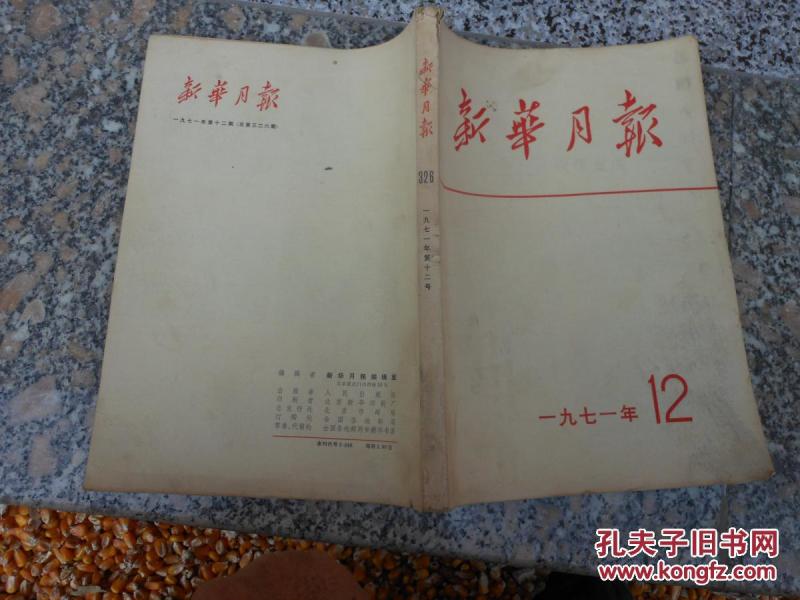 新華月報
一九七一年第十二期（总第三二六期）
新華月報
326
一九七一年第十二号
新華月報
一九七一年 12
编辑者 新华月报编辑室
出版者 人民出版社
印刷者 北京新华印刷厂
总发行处 北京市邮局
订阅处 全国各地邮局
零售、代销处 全国各地邮局和新华书店
孔夫子旧书网
www.kongfz.com